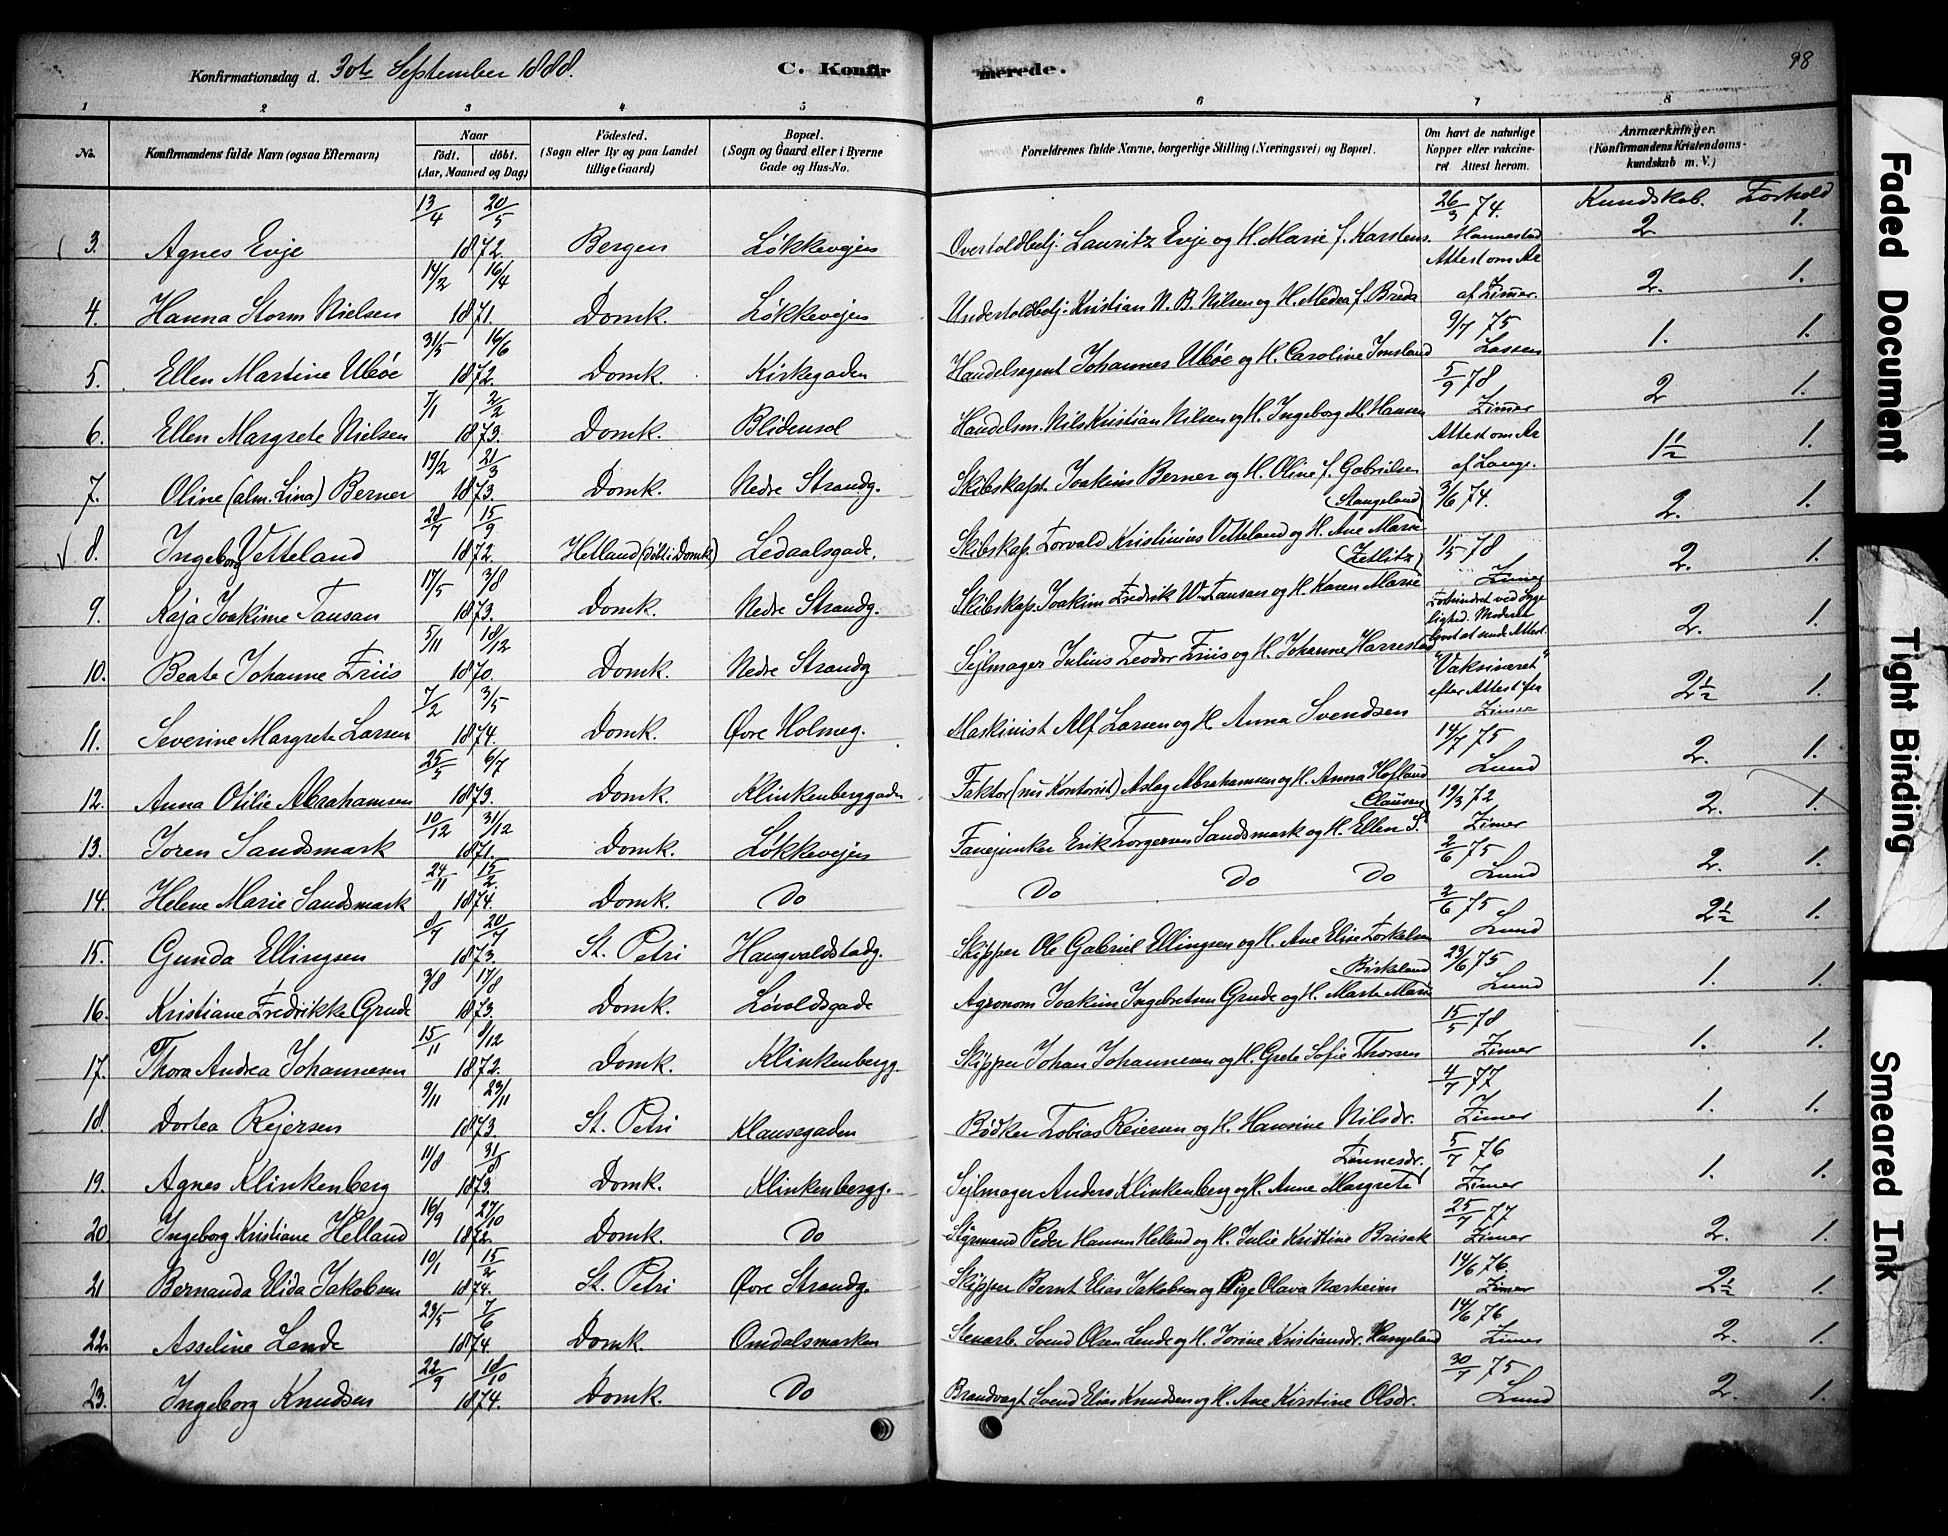 Konfirmationsdag d. 30te September 1888. C. Konfirmerede. 98
1 2 3 4 5 6 7 8
No. Konfirmandens fulde Navn (ogsaa Efternavn) Naar født. døbt. (Aar, Maaned og Dag) Fødested. (Sogn eller By og paa Landet tillige Gaard) Bopæl. (Sogn og Gaard eller i Byerne Gade og Hus-No. Forældrenes fulde Navne, borgerlige Stilling (Næringsvei) og Bopæl. Om havt de naturlige Kopper eller vakcineret Attest herom. Anmærkninger. (Konfirmandens Kristendomskundskab m. V.)
Kundskab. Forhold
3. Agnes Evje 13/4 20/5 1872. Bergen Løkkevejen Overtoldbetj. Lauritz Evje og H. Marie f. Karstens. 26/3 74. Hannestad 2 1.
4. Hanna Storm Nielsen 14/2 16/4 1871. Domk. Løkkevejen Undertoldbetj. Kristian N. B. Nilsen og H. Medea f. Breda Attest om Ar af Zimmer. 2. 1.
5. Ellen Martine Ubøe 31/5 16/6 1872. Domk. Kirkegaden Handelsagent Johannes Ubøe og H. Caroline Jonsland 9/7 75 Lassen 1. 1.
6. Ellen Margrete Nielsen 7/1 2/2 1873. Domk. Blidensol Handelsm. Nils Kristian Nilsen og H. Ingeborg M. Hansen 5/9 78 Zimmer 2 1.
7. Oline (alm. Lina) Berner 19/2 21/3 1873. Domk. Nedre Strandg. Skibskapt. Joakim Berner og H. Oline f. Gabrielsen Attest om Ar af Lange. 1½ 1.
8. Ingeborg Vetteland 28/7 15/9 1872. Helland (døbt i Domk) Ledaalsgade. Skibskap. Torvald Kristinius Vetteland og H. Ane Marie (Stangeland) 3/6 74. 2. 1.
9. Kaja Joakime Tansan 17/5 3/8 1873. Domk. Nedre Strandg. Skibskap. Joakim Fredrik W. Tansan og H. Karen Marie (Zetlitz) 1/5 78 Zimer 2. 1.
10. Beate Johanne Friis 5/11 18/12 1870. Domk. Nedre Strandg Sejlmager Julius Teodor Friis og H. Johanne Harrestad Forhindret ved Sygelighed. Moderen lovet at sende Attest. 2. 1.
11. Severine Margrete Larsen 7/2 3/5 1874. Domk. Øvre Holmeg. Maskinist Alf Larsen og H. Anna Svendsen "Vaksineret" efter Attest fra Zimer 2½ 1.
12. Anna Otilie Abrahamsen 25/5 6/7 1873. Domk. Klinkenberggaden Faktor (nu Kontorist) Aslag Abrahamsen og H. Anna Hofland 14/7 75 Lund 2. 1.
13. Toren Sandsmark 10/12 31/12 1871. Domk. Løkkevejen Fanejunker Erik Torgersen Sandsmark og H. Ellen S. Clausen 19/3 72 Zimer 2. 1.
14. Helene Marie Sandsmark 24/11 15/2 1874. Domk. Do Do Do Do 2/6 75 Lund 2. 1.
15. Gunda Ellingsen 8/7 20/7 1873. St. Petri Haugvaldstadg. Skipper Ole Gabriel Ellingsen og H. Ane Elise Torkelsen 2/6 75 Lund 2½ 1.
16. Kristiane Fredrikke Grude 3/8 17/8 1873. Domk. Løvoldsgade Agronom Joakim Ingebretsen Grude og H. Marte Marie Birkeland 23/6 75 Lund 1. 1.
17. Thora Andrea Johannesen 15/11 8/12 1872. Domk. Klinkenbergg. Skipper Johan Johannesen og H. Grete Sofie Thorsen 15/5 78 Zimer 1. 1.
18. Dortea Rejersen 9/11 23/11 1873 St. Petri Klausegaden Bødker Tobias Reiersen og H. Hansine Nilsdr. 4/7 77 Zimer 1. 1.
19. Agnes Klinkenberg 11/8 31/8 1873. Domk. Klinkenbergg. Sejlmager Anders Klinkenberg og H. Anne Margrete Tønnesdr. 5/7 76 Zimer 1. 1.
20. Ingeborg Kristiane Helland 16/9 27/10 1872. Domk. Do Styrmand Peder Hansen Helland og H. Julie Kristine Brisak 25/7 77 Zimer 2. 1.
21 Bernanda Elida Jakobsen 10/1 15/2 1874. St. Petri Øvre Strandg. Skipper Bernt Elias Jakobsen og Pige Olava Nærheim 14/6 76. Zimer 2½ 1.
22. Asseline Lende 23/5 7/6 1874. Domk. Omdalsmarken Stenarb. Svend Olsen Lende og H. Jorine Kristiansdr. Haugeland 14/6 76 Zimer 2. 1.
23. Ingeborg Knudsen 22/9 18/10 1874. Domk. Do Brandvagt Svend Elias Knudsen og H. Ane Kirstine Olsdr. 30/7 75 Lund 2. 1.
Faded Document
Tight Binding
Smeared Ink